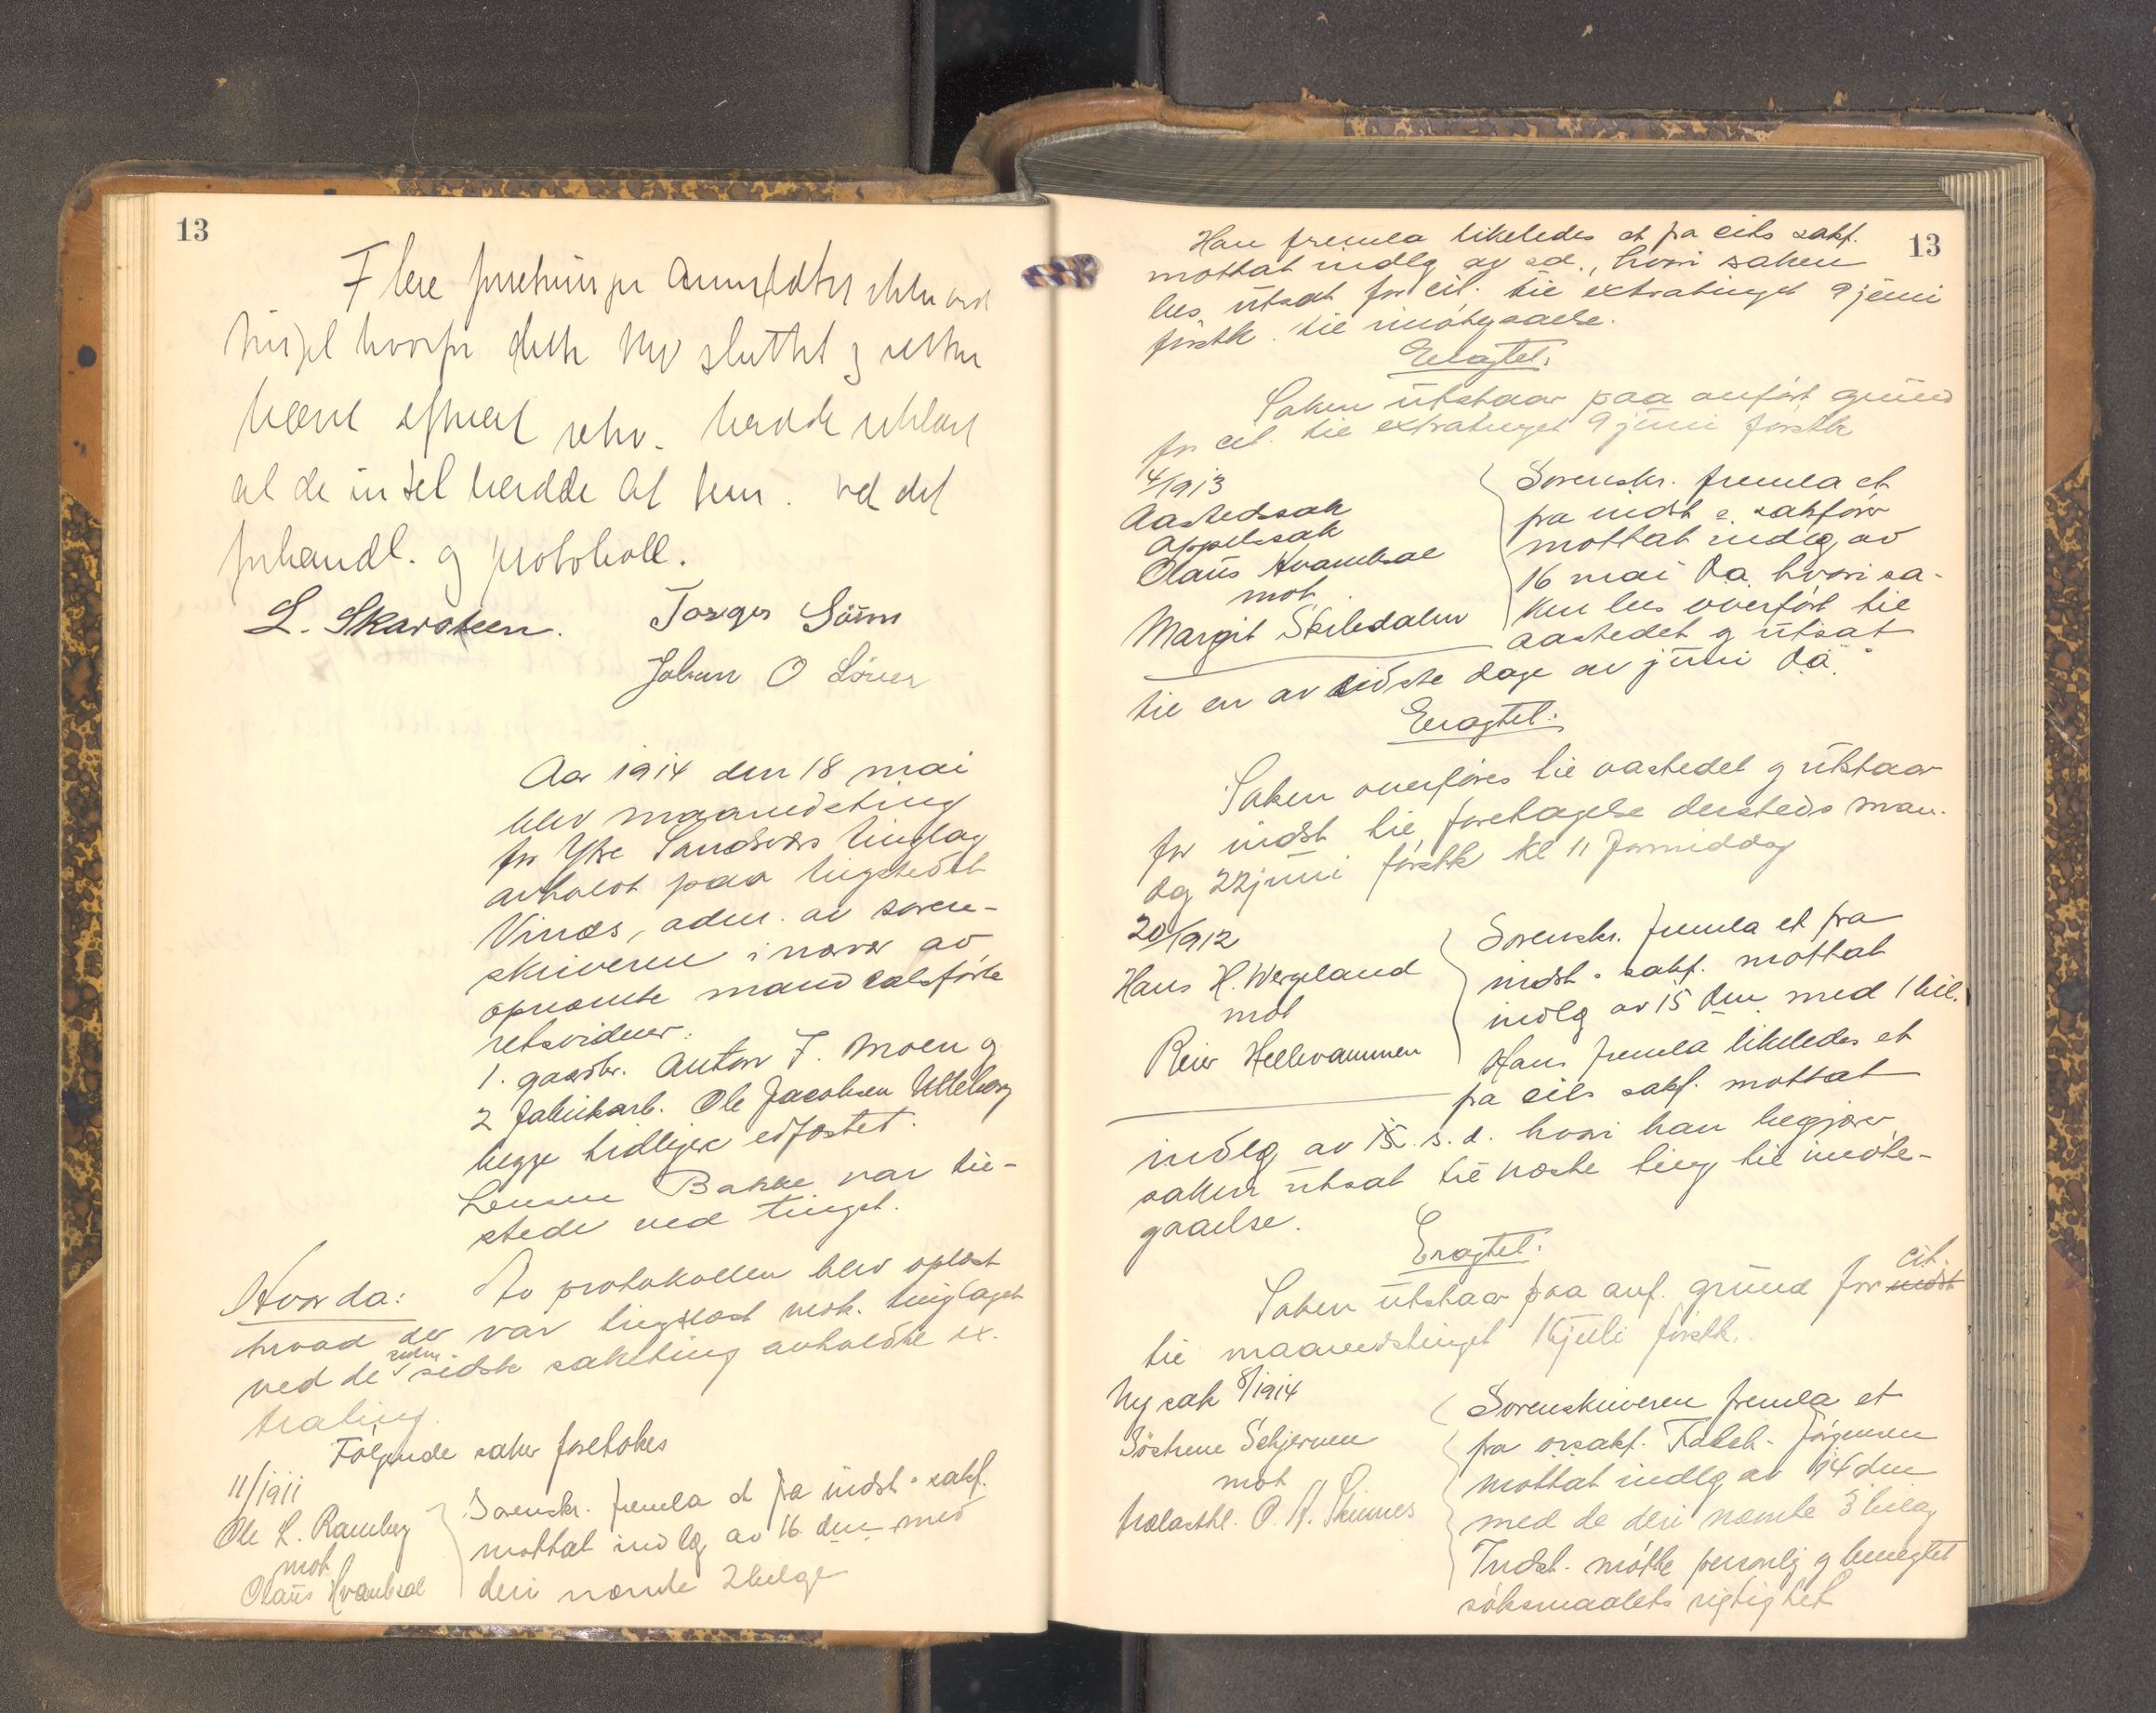 13
Flere forretninger anmeldtes ikke ved
tinget hvorfor dette blev sluttet og retten
hævet efterat retsv. hadde erklært
at de intet hadde at bem. ved det
forhandl. og protokoll.
L. Skarsteen. Torger
Johan O
Aar 1914 den 18 mai
blev maanedsting
for Ytre Sandsvær tinglag
avholdt paa tingstedet
Vinæs, adm. av soren-
skriveren i nærvær av
opnævnte mandtalsførte
retsvidner:
1. gaardbr. Anton F. Moen og
2 fabrikarb. Ole Jacobsen Ulleberg
begge tidligere edfæstet.
Lensm Bakke var til-
stede ved tinget.
Hvorda: Av protokollen blev oplæst
hvad der var tinglæst vedk. tinglaget
ved de siden sidste sakteting avholdte ex-
trating.
Følgende saker foretokes
11/1911
Ole L. Ramberg
mot
Olaus Hvambsal
Sorenskr. fremla et fra indst's sakf.
mottat indlæg av 16 dm med
deri nævnte 2 bilage
13
Han fremla likeledes et fra cits sakf.
mottat indlg av sd., hvori saken
bes utsat for cit. til extratinget 9 juni
førstk. til imøtegaaelse.
Eragtet:
Saken utstaar paa anført grund
for cit. til extratinget 9 juni førstk
4/1913
Aastedssak
appelsak
Olaus Hvambsal
mot
Margit Skiledalen
Sorenskr. fremla et
fra indst s. sakfører
mottat indlæg av
16 mai d.a. hvori sa-
ken bes overført til
aastedet og utsat
til en av sidste dage av juni d.a.
Eragtet:
Saken overføres til aastedet og utstaar
for indst til foretagelse dersteds man-
dag 22 juni førstk kl 11 formiddag
20/1912
Hans H. Wergeland
mot
Reier Hellevammen
Sorenskr. fremla et fra
indst's sakf. mottat
indlg av 15 dm med 1 bil.
Han fremla likeledes et
fra cits sakf. mottat
indlæg av 15. s.d. hvori han begjærer
saken utsat til næste ting til imøte-
gaaelse.
Eragtet:
Saken utstaar paa anf. grund for indst cit.
til maanedstinget 16 juli førstk.
Ny sak 8/1914
Søstrene Schjerven
mot
O. H. Skinnes
Sorenskriveren fremla et
fra orsakf. Falch-Jørgensen
mottat indlæg av 14 dm
med de deri nævnte 3 bilag
Indst. møtte personlig og benegtet
søksmaalets rigtighet